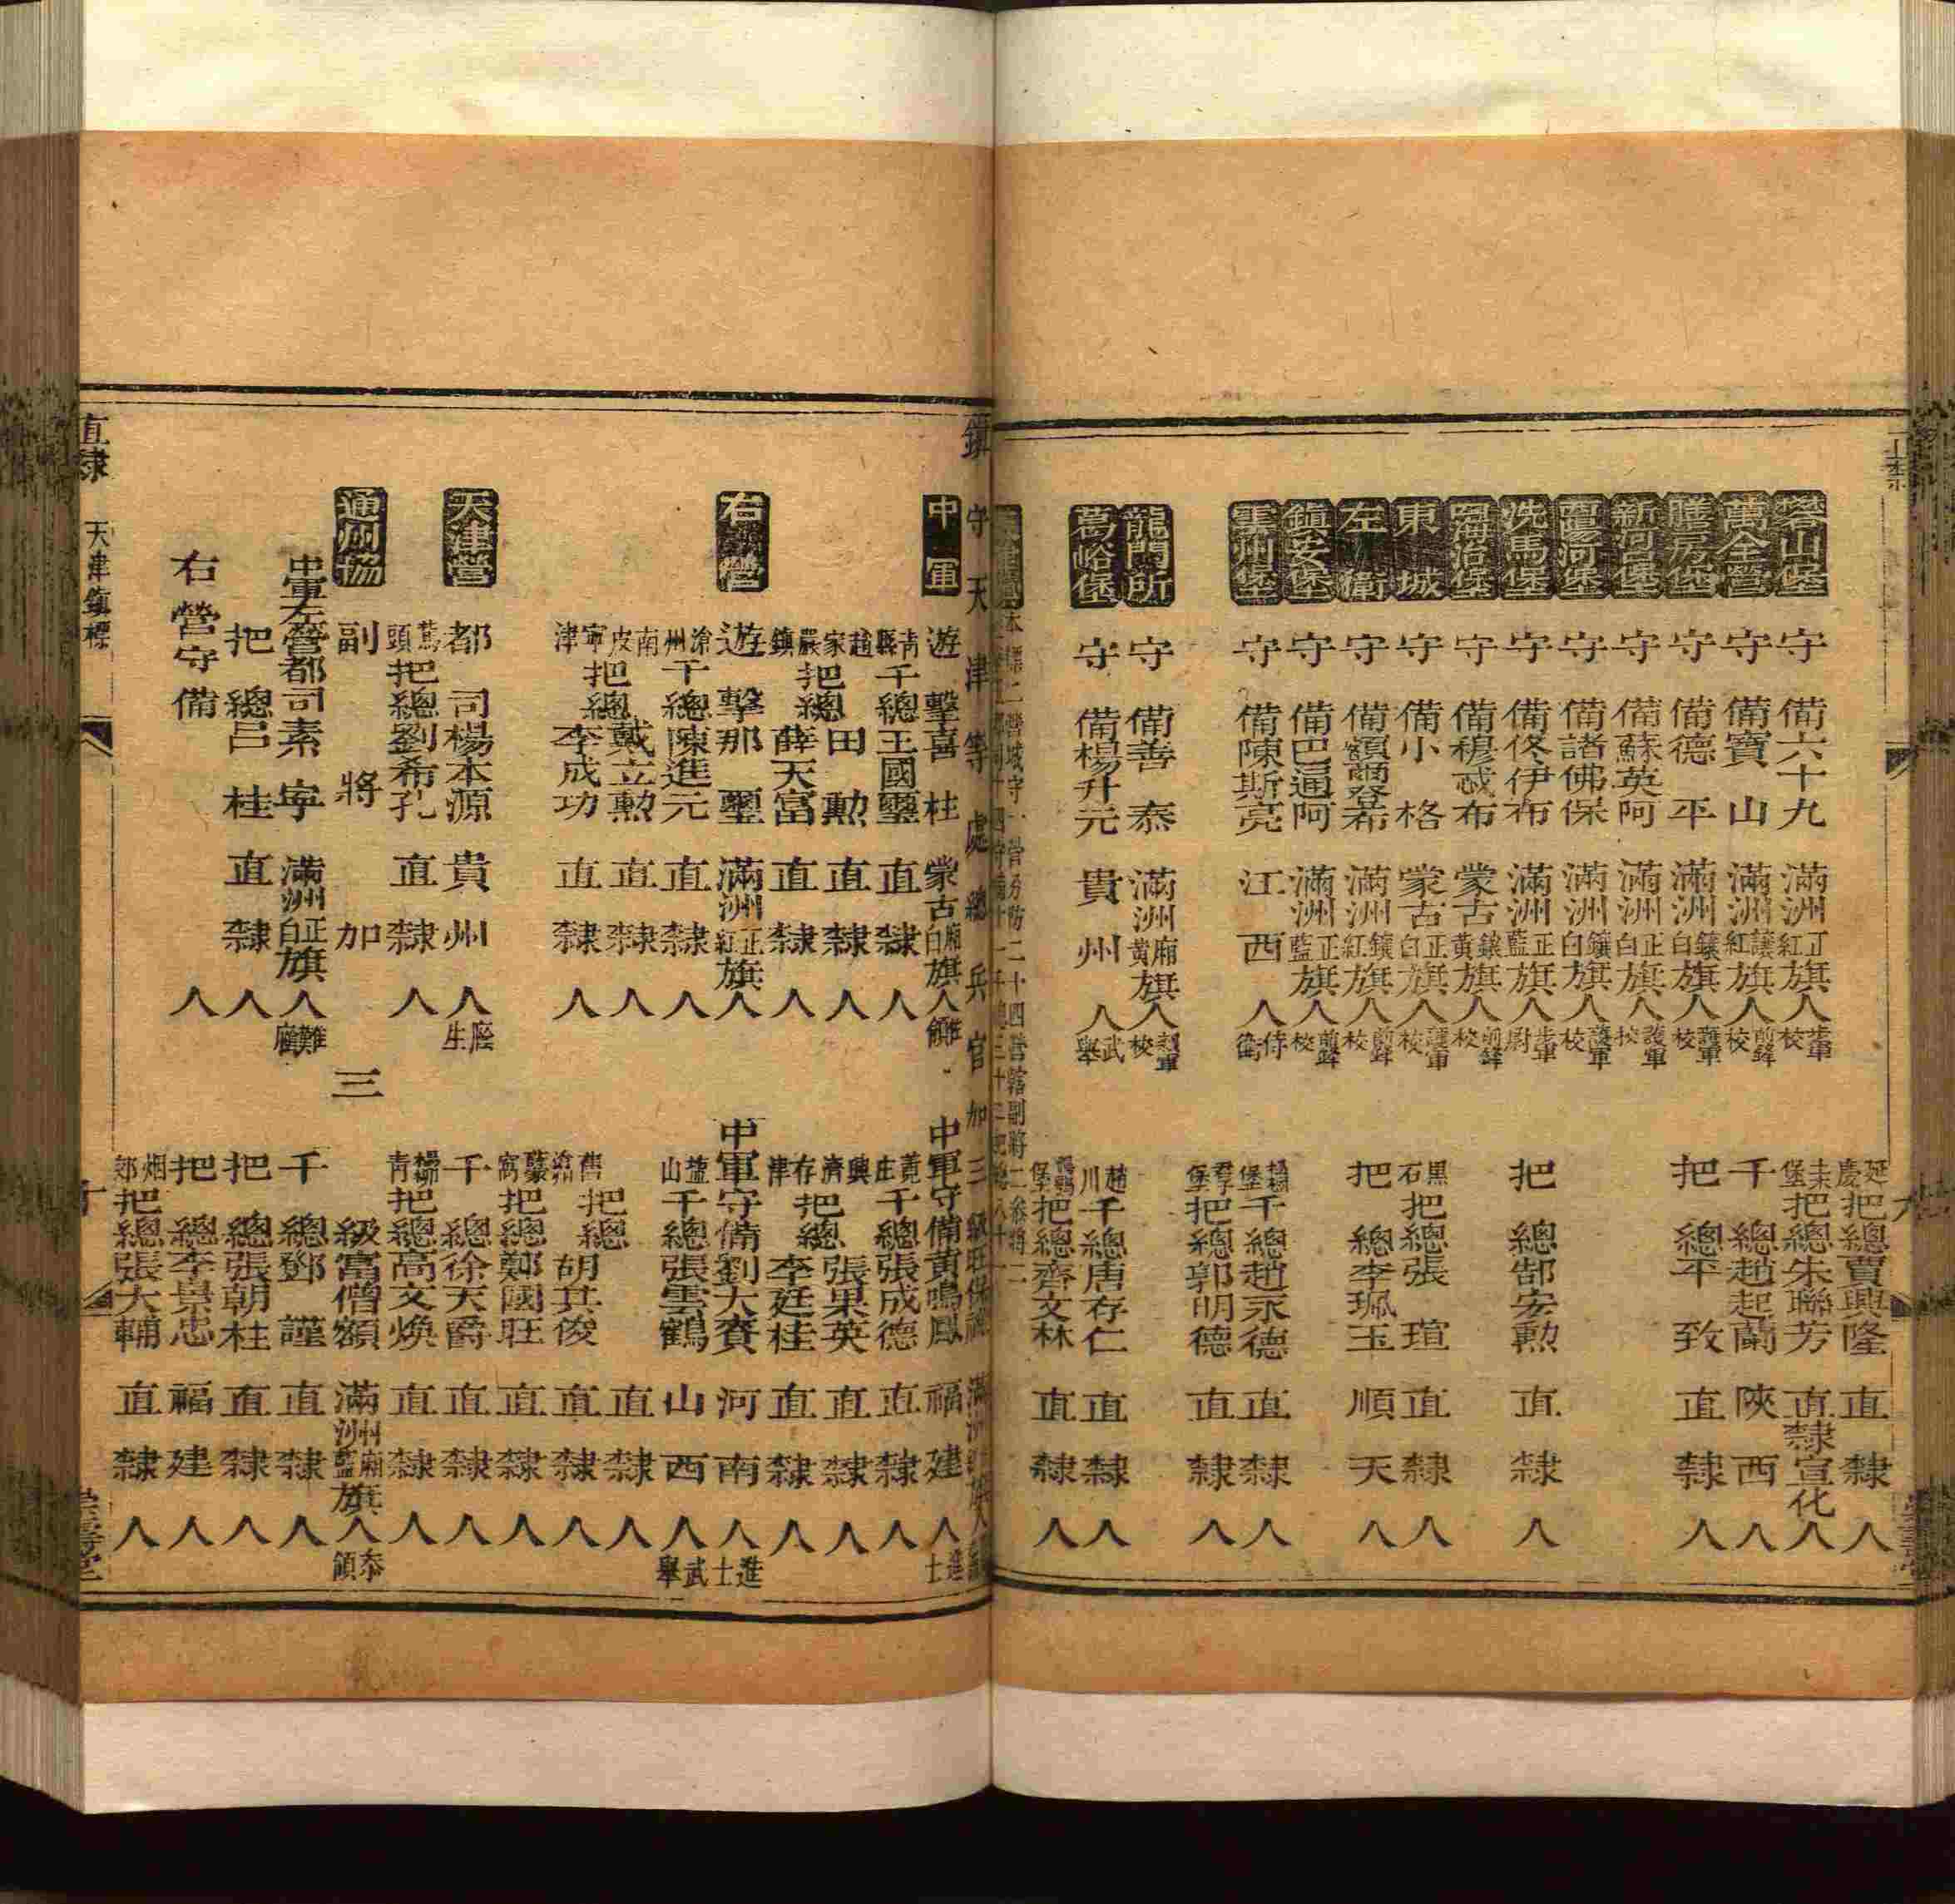 礬山堡 守備六十九 滿洲正紅旗人 步軍校
延慶把總賈興隆 直隸人
萬全營 守備寶山 滿洲鑲紅旗人 前鋒校
堡把總朱聯芳 直隸宣化人
膳房堡 守備德平 滿洲鑲白旗人 護軍校
千總趙起蘭 陝西人
新河堡 守備蘇英阿 滿洲正白旗人 護軍校
把總平致 直隸人
守備諸佛保 滿洲鑲白旗人 護軍校
洗馬堡 守備佟伊布 滿洲正藍旗人 步軍尉
把總郜安勲 直隸人
守備穆忒布 蒙古鑲黃旗人 前鋒校
東城 守備小格 蒙古正白旗人 護軍校
黑石把總張瑄 直隸人
左衛 守備額爾登布 滿洲鑲紅旗人 前鋒校
把總李珮玉 順天人
鎮安堡 守備巴逼阿 滿洲正藍旗人 前鋒校
堡千總趙永德 直隸人
雲州堡 守備陳斯亮 江西人 侍衛
堡把總郭明德 直隸人
龍門所 守備善泰 滿洲廂黃旗人 護軍校
趙川千總唐存仁 直隸人
葛峪堡 守備楊升元 貴州人 武舉
堡把總齊文林 直隸人
鎮守天津等處總兵官加三級
中軍 遊擊喜柱 蒙古廂白旗人
中軍守備黃鳴鳳 福建人 進士
青縣千總王國璽 直隸人
黃庄千總張成德 直隸人
趙家把總田勲 直隸人
興濟把總張果英 直隸人
嚴鎮把總薛天富 直隸人
存津把總李廷桂 直隸人
右營 遊擊那璽 滿洲正紅旗人
中軍守備劉大賚 河南人 進士
滄州千總陳進元 直隸人
鹽山千總張雲鶴 山西人 武舉
南皮把總戴立勲 直隸人
直隸人
寧津把總李成功 直隸人
舊滄把總胡其俊 直隸人
把總鄭國旺 直隸人
天津營 都司楊本源 貴州人 廕生
千總徐天爵 直隸人
頭把總劉希孔 直隸人
楊青把總高文煥 直隸人
通州協 副將加三級富僧額 滿洲廂藍旗人 叅領
中軍左營都司素寧 滿洲正白旗人 難廕
千總鄧謹 直隸人
把總呂桂 直隸人
把總張朝柱 直隸人
右營守備 人
把總李景忠 福建人
烟郊把總張大輔 直隸人
直隸 天津鎮標